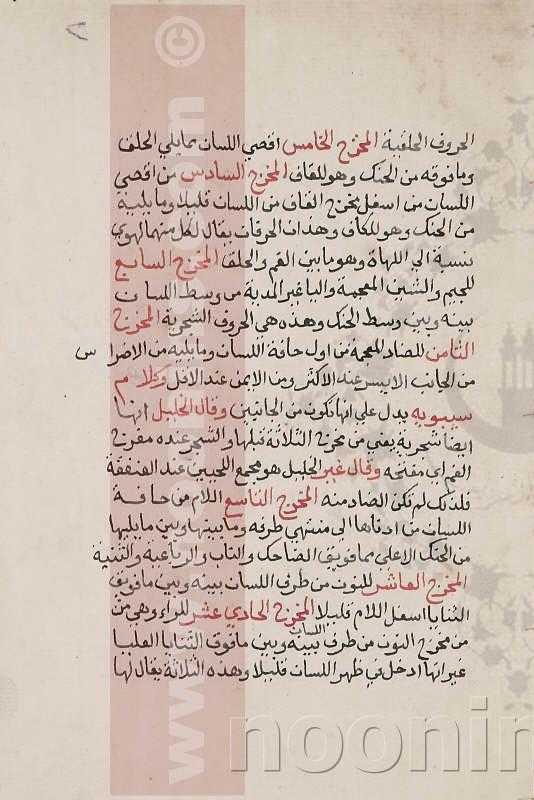 الحروف الحلقية المخرج الخامس اقصي اللسان مما يلي الحلق
وما فوقه من الحنك وهو للقاف المخرج السادس من اقصي
اللسان من اسفل مخرج القاف من اللسان قليلا وما يليه
من الحنك وهو للكاف وهذان الحرفان يقال لكل منهما لهوي
نسبة الي اللهاة وهو ما بين الفم والحلق المخرج السابع
للجيم والشين المعجمة واليا غير المدية من وسط اللسان
بينه وبين وسط الحنك وهذه هي الحروف الشجرية المخرج
الثامن للضاد المعجمه من اول حافة اللسان وما يليه من الاضراس
من الجانب الايسر عند الاكثر ومن الايمن عند الاقل وكلام
سيبويه يدل علي انها تكون من الجانبين وقال الخليل انها
ايضا شجرية يعني من مخرج الثلاثة قبلها والشجر عنده مفرج
الفم اي مفتحه وقال غير الخليل هو مجمع اللحيين عند العنفقة
فلذلك لم تكن الضاد منه المخرج التاسع اللام من حافة
اللسان من ادناها الي منتهي طرفه وما بينها وبين ما يليها
من الحنك الاعلي مما فويق الضاحك والناب والرباعية والثنية
المخرج العاشر للنون من طرف اللسان بينه وبين ما فويق
الثنايا اسفل اللام قليلا المخرج الحادي عشر للراء وهي من
من مخرج النون من طرف اللسان بينه وبين ما فوق الثنايا العليا
غير انها ادخل في ظهر اللسان قليلا وهذه الثلاثة يقال لها
noonin